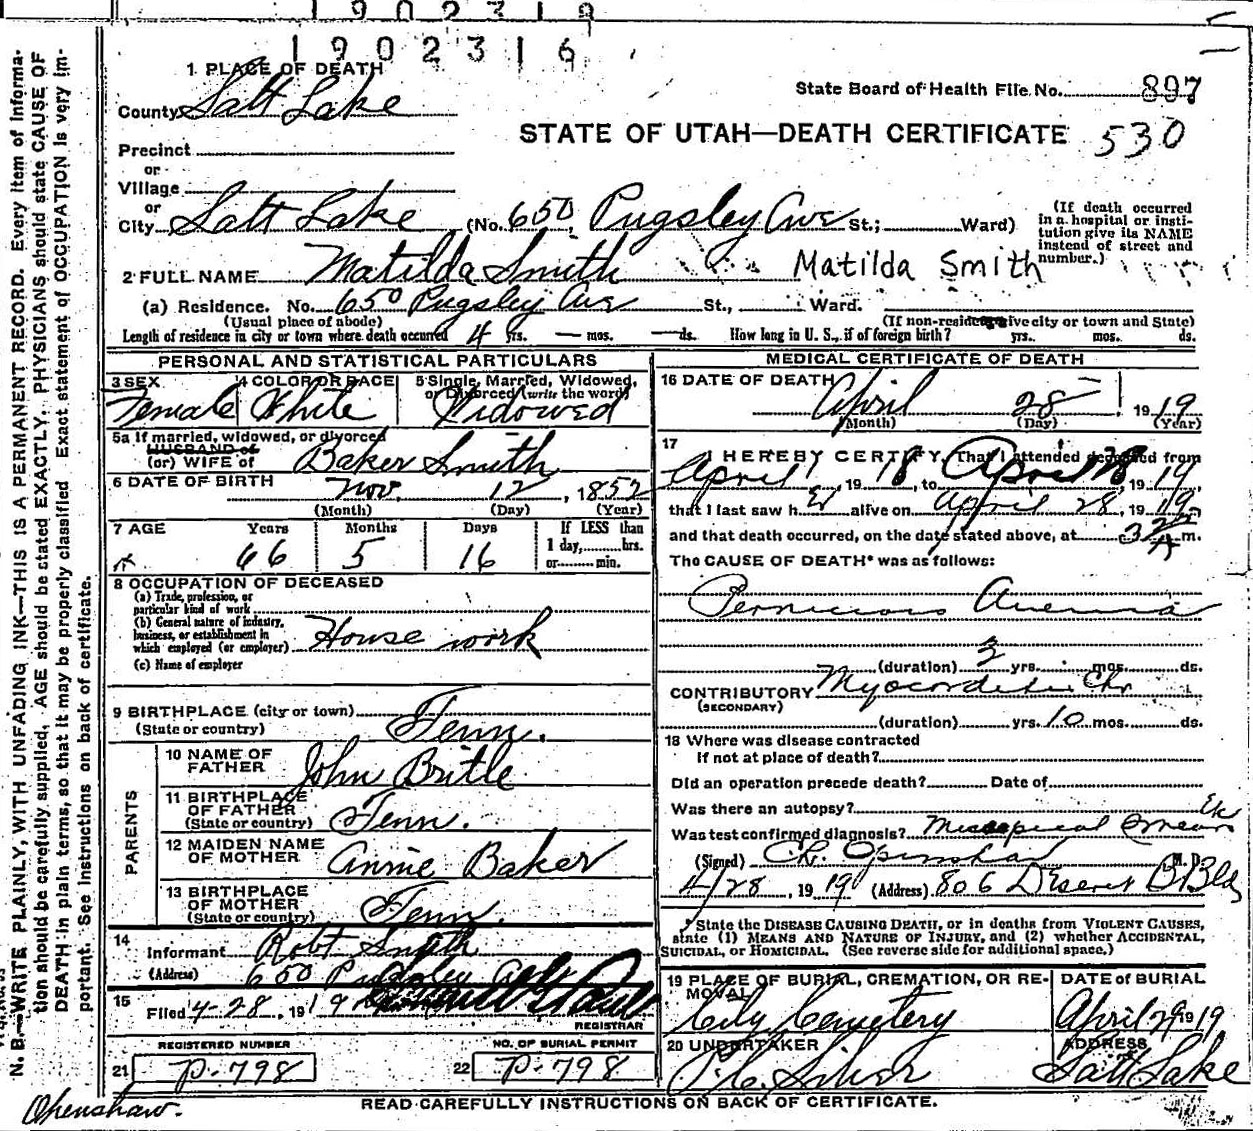 1902316
1 PLACE OF DEATH
State Board of Health File No. 897
County Salt Lake
STATE OF UTAH—DEATH CERTIFICATE 530
Precinct
or
Village
or
City Salt Lake (No. 650, Pugsley Ave St.; Ward)
(If death occurred in a hospital or institution give its NAME instead of street and number.)
2 FULL NAME Matilda Smith Matilda Smith
(a) Residence. No. 650 Pugsley Ave St., Ward.
(Usual place of abode) (If non-resident give city or town and State)
Length of residence in city or town where death occurred 4 yrs. — mos. — ds. How long in U. S., if of foreign birth? yrs. mos. ds.
PERSONAL AND STATISTICAL PARTICULARS
3 SEX 4 COLOR OR RACE 5 Single, Married, Widowed, or Divorced (write the word)
Female White Widowed
5a If married, widowed, or divorced
HUSBAND of
(or) WIFE of Baker Smith
6 DATE OF BIRTH Nov. 12, 1852
(Month) (Day) (Year)
7 AGE Years Months Days If LESS than
66 5 16 1 day, hrs.
or min.
8 OCCUPATION OF DECEASED
(a) Trade, profession, or
particular kind of work
(b) General nature of industry,
business, or establishment in
which employed (or employer) House work
(c) Name of employer
9 BIRTHPLACE (city or town)
(State or country) Tenn.
PARENTS
10 NAME OF FATHER John Britle
11 BIRTHPLACE OF FATHER
(State or country) Tenn.
12 MAIDEN NAME OF MOTHER Annie Baker
13 BIRTHPLACE OF MOTHER
(State or country) Tenn.
14
Informant Robt Smith
(Address) 650 Pugsley Ave
15
Filed 4-28, 1919
REGISTRAR
REGISTERED NUMBER NO. OF BURIAL PERMIT
21 P-798 22 P-798
MEDICAL CERTIFICATE OF DEATH
16 DATE OF DEATH April 28, 1919
(Month) (Day) (Year)
17 I HEREBY CERTIFY, That I attended deceased from
April 1, 1918, to April 28, 1919,
that I last saw her alive on April 28, 1919,
and that death occurred, on the date stated above, at A m.
The CAUSE OF DEATH* was as follows:
Pernicious Anemia
(duration) 3 yrs. mos. ds.
CONTRIBUTORY Myocarditis Chr
(SECONDARY)
(duration) yrs. 10 mos. ds.
18 Where was disease contracted
If not at place of death?
Did an operation precede death? Date of
Was there an autopsy?
Was test confirmed diagnosis?
(Signed) Openshaw M. D.
4/28, 1919 (Address) 806 Deseret B. Bldg
* State the DISEASE CAUSING DEATH, or in deaths from VIOLENT CAUSES,
state (1) MEANS AND NATURE OF INJURY, and (2) whether ACCIDENTAL,
SUICIDAL, or HOMICIDAL. (See reverse side for additional space.)
19 PLACE OF BURIAL, CREMATION, OR REMOVAL DATE of BURIAL
City Cemetery April 29 1919
20 UNDERTAKER ADDRESS
Silver Salt Lake
Openshaw.
READ CAREFULLY INSTRUCTIONS ON BACK OF CERTIFICATE.
N. B.—WRITE PLAINLY, WITH UNFADING INK—THIS IS A PERMANENT RECORD. Every item of Informa-
tion should be carefully supplied, AGE should be stated EXACTLY. PHYSICIANS should state CAUSE OF
DEATH in plain terms, so that it may be properly classified. Exact statement of OCCUPATION is very im-
portant. See instructions on back of certificate.